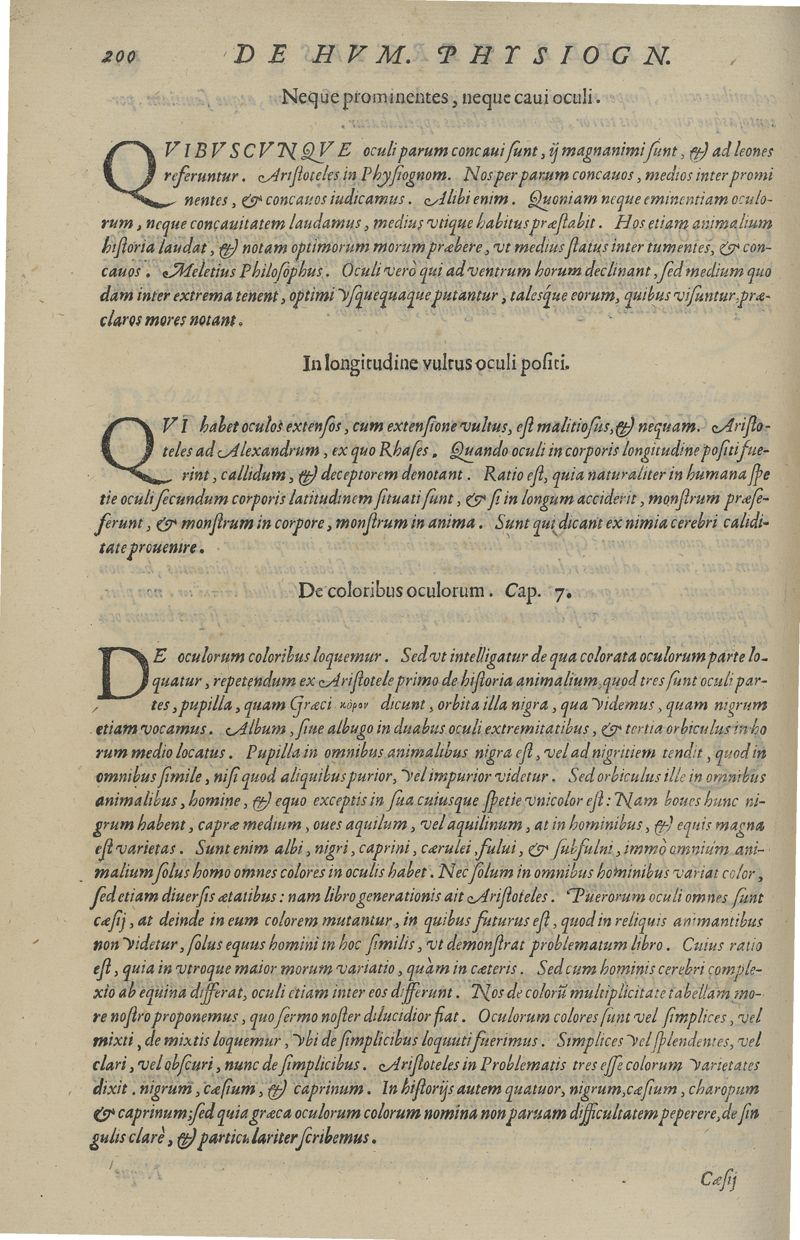 200 DE HVM. PHYSIOGN.
Neque prominentes, neque caui oculi.
QVIBVSCVNQVE oculi parum concaui sunt, ij magnanimi sunt, & ad leones
referuntur. Aristoteles in Physiognom. Nos per parum concauos, medios inter promi
nentes, & concauos iudicamus. Alibi enim. Quoniam neque eminentiam oculo-
rum, neque concauitatem laudamus, medius vtique habitus præstabit. Hos etiam animalium
historia laudat, & notam optimorum morum præbere, vt medius status inter tumentes, & con-
cauos. Meletius Philosophus. Oculi verò qui ad ventrum horum declinant, sed medium quo
dam inter extrema tenent, optimi vsquequaque putantur, talesq́ue eorum, quibus visuntur, præ-
claros mores notant.
In longitudine vultus oculi positi.
QVI habet oculos extensos, cum extensione vultus, est malitiosus, & nequam. Aristo-
teles ad Alexandrum, ex quo Rhases. Quando oculi in corporis longitudine positi fue-
rint, callidum, & deceptorem denotant. Ratio est, quia naturaliter in humana spe
tie oculi secundum corporis latitudinem situati sunt, & si in longum acciderit, monstrum præse-
ferunt, & monstrum in corpore, monstrum in anima. Sunt qui dicant ex nimia cerebri calidi-
tate prouenire.
De coloribus oculorum. Cap. 7.
DE oculorum coloribus loquemur. Sed vt intelligatur de qua colorata oculorum parte lo-
quatur, repetendum ex Aristotele primo de historia animalium, quod tres sunt oculi par-
tes, pupilla, quam Græci κόρον dicunt, orbita illa nigra, qua videmus, quam nigrum
etiam vocamus. Album, siue albugo in duabus oculi extremitatibus, & tertia orbiculus in ho
rum medio locatus. Pupilla in omnibus animalibus nigra est, vel ad nigritiem tendit, quod in
omnibus simile, nisi quod aliquibus purior, vel impurior videtur. Sed orbiculus ille in omnibus
animalibus, homine, & equo exceptis in sua cuiusque spetie vnicolor est: Nam boues hunc ni-
grum habent, capræ medium, oues aquilum, vel aquilinum, at in hominibus, & equis magna
est varietas. Sunt enim albi, nigri, caprini, cærulei, fului, & subfului, immò omnium ani-
malium solus homo omnes colores in oculis habet. Nec solum in omnibus hominibus variat color,
sed etiam diuersis ætatibus: nam libro generationis ait Aristoteles. Puerorum oculi omnes sunt
cæsij, at deinde in eum colorem mutantur, in quibus futurus est, quod in reliquis animantibus
non videtur, solus equus homini in hoc similis, vt demonstrat problematum libro. Cuius ratio
est, quia in vtroque maior morum variatio, quàm in cæteris. Sed cum hominis cerebri comple-
xio ab equina differat, oculi etiam inter eos differunt. Nos de colorũ multiplicitate tabellam mo-
re nostro proponemus, quo sermo noster dilucidior fiat. Oculorum colores sunt vel simplices, vel
mixti, de mixtis loquemur, vbi de simplicibus loquuti fuerimus. Simplices vel splendentes, vel
clari, vel obscuri, nunc de simplicibus. Aristoteles in Problematis tres esse colorum varietates
dixit. nigrum, cæsium, & caprinum. In historijs autem quatuor, nigrum, cæsium, charopum
& caprinum; sed quia græca oculorum colorum nomina non paruam difficultatem peperere, de sin
gulis clarè, & particulariter scribemus.
Cæsij